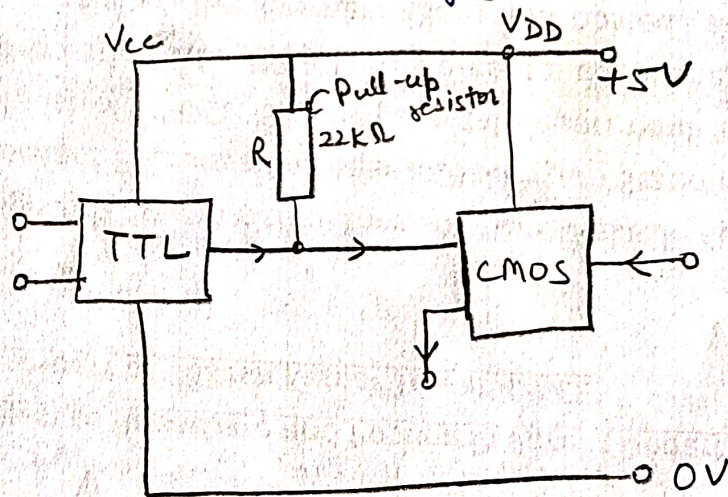 Vcc
VDD
+5V
Pull-up
resistor
R
22KΩ
TTL
CMOS
0V